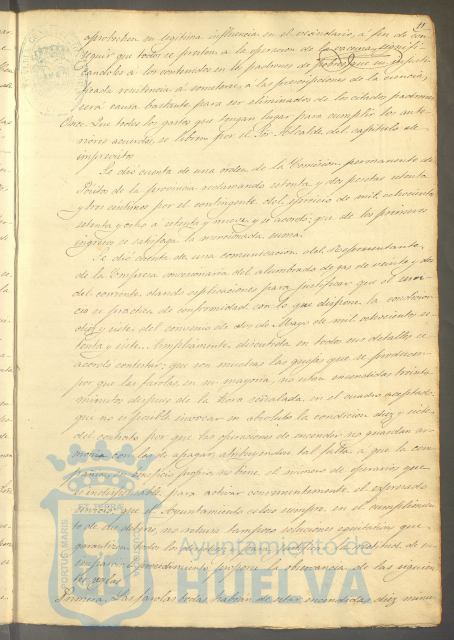 11
aprobechen su legitima influencia en el vecindario, á fin de con
seguir que todos se presten á la operacion de la vacuna, signifi
candoles á los contenidos en los padrones de que su injusti
ficada resistencia á someterse, á las prescripciones de la ciencia,
será causa bastante para ser eliminados de los citados padrones
Once. Que todos los gastos que tengan lugar para cumplir los ante
riores acuerdos, se libren por el Sor. Alcalde del capitulo de
imprevistos
Se dió cuenta de una orden de la Comision permanente de
Pósitos de la provincia reclamando setenta y dos pesetas setenta
y tres centimos por el contingente del ejercicio de mil ochocientos
setenta y ocho á setenta y nueve, y se acordó: que de los primeros
ingresos se satisfaga la mencionada suma.
Se dió cuenta de una comunicacion del Representante
de la Empresa concesionaria del alumbrado de gas de veinte y dos
del corriente, dando esplicaciones para justificar que el servi
cio se practica de conformidad con lo que dispone la condicion
diez y siete del convenio de dos de Mayo de mil ochocientos se
tenta y siete. Ampliamente discutida en todos sus detalles se
acordó contestar: que son muchas las quejas que se producen
por que las farolas, en su mayoria, no estan encendidas treinta
minutos despues de la hora señalada en el cuadro aceptado:
que no es posible invocar en absoluto la condicion diez y siete
del contrato por que las operaciones de encender no guardan ar
monia con las de apagar, atribuyendose tal falta, á que la com
pañia, en beneficio propio, no tiene el número de operarios que
es indispensable para activar convenientemente el espresado
servicio: que el Ayuntamiento celoso siempre en el cumplimien
to de los deberes, no rehusa tampoco soluciones equitativas que
garanticen todos los intereses,
proponer la observancia de las siguien
tes reglas
Primera. Las farolas todas habran de estar encendidas diez minu
PORTUS MARIS
ET TERRÆ
CUSTODIA
Ayuntamiento de
HUELVA